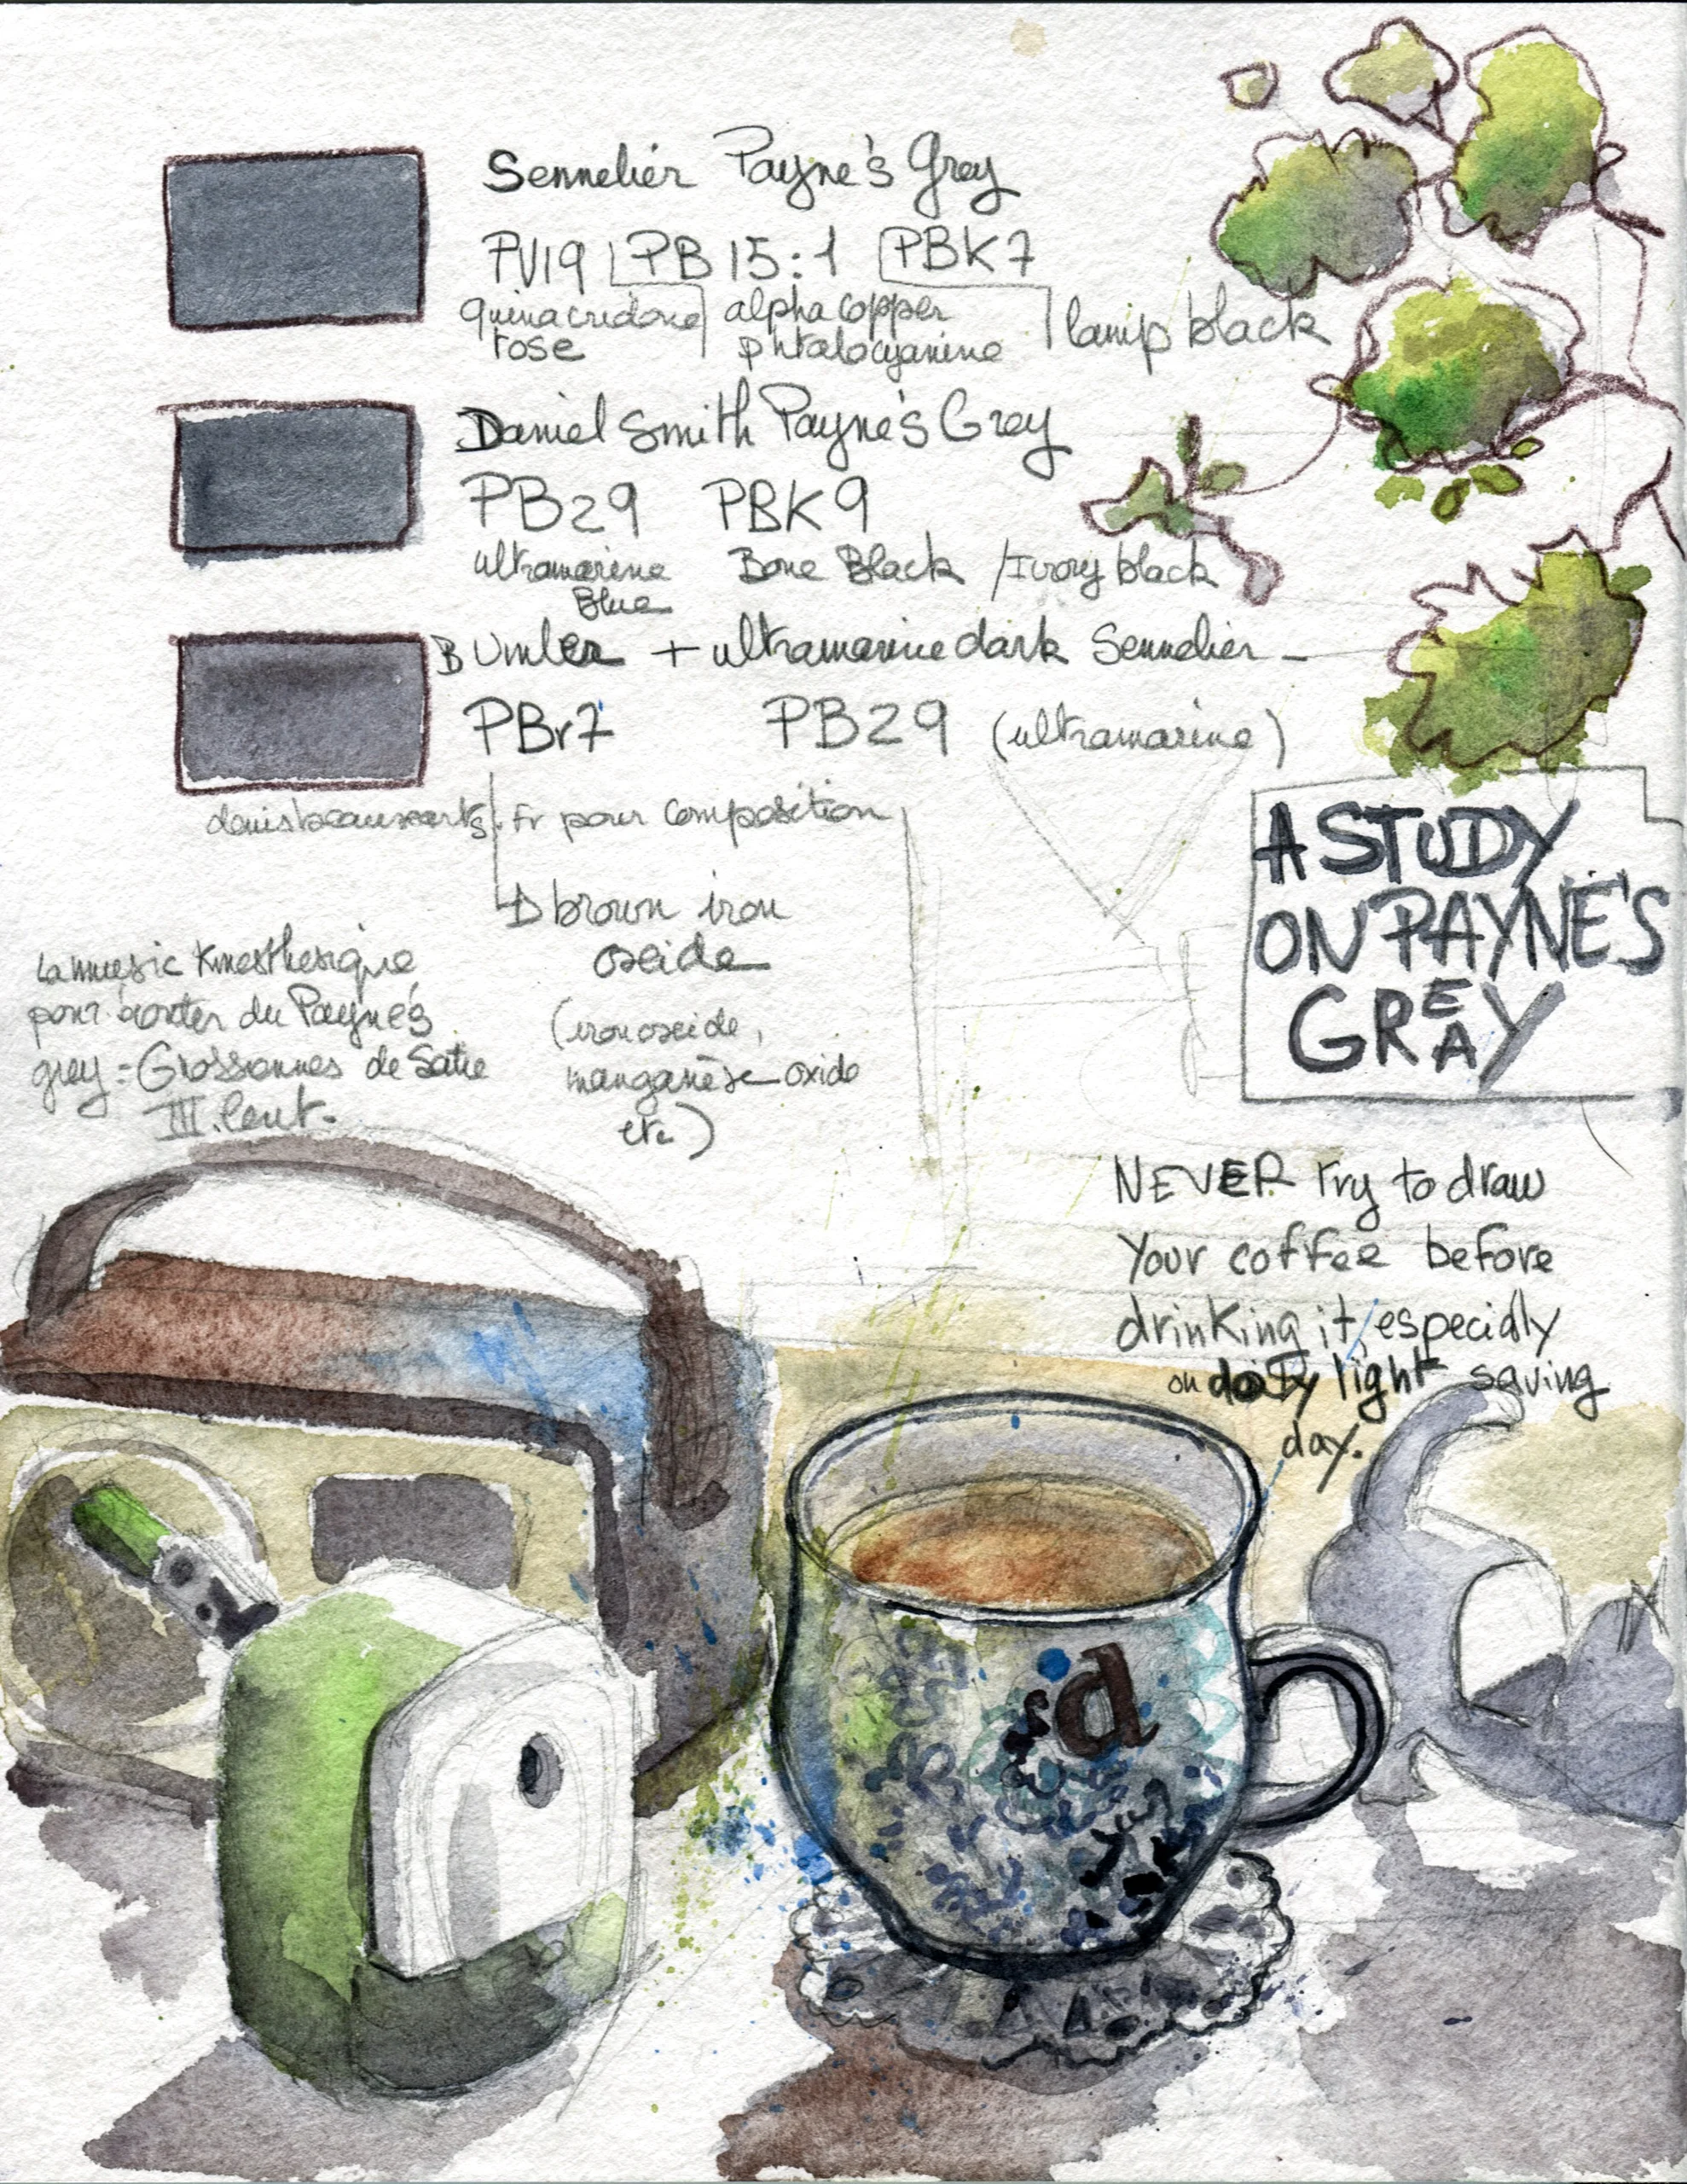 Sennelier Payne's Grey
PV19 PB 15:1 PBK7
quinacridone alpha copper lamp black
rose phtalocyanine
Daniel Smith Payne's Grey
PB29 PBK9
ultramarine Bone Black / Ivory black
Blue
B Umber + ultramarine dark Sennelier -
PBr7 PB29 (ultramarine)
denisbeauxarts.fr pour composition
brown iron
oxide
(iron oxide,
manganèse oxide
etc)
la music Kinesthesique
pour du Payne's
grey = de Satie
III. lent.
A STUDY
ON PAYNE'S
GREAY
NEVER Try to draw
your coffee before
drinking it, especially
on light saving
day.
sd